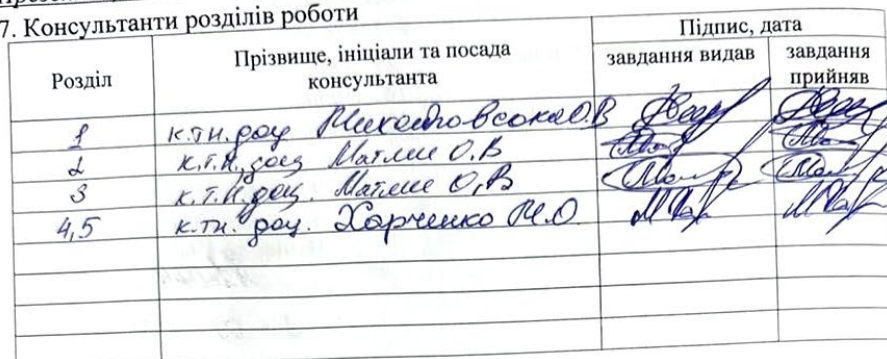 7. Консультанти розділів роботи
Розділ
Прізвище, ініціали та посада
консультанта
Підпис, дата
завдання видав
завдання
прийняв
1 к.т.н. доц Михайловська О.В
2 к.т.н. доц Матяш О.В
3 к.т.н. доц. Матяш О,В
4,5 к.т.н. доц. Харченко М.О.